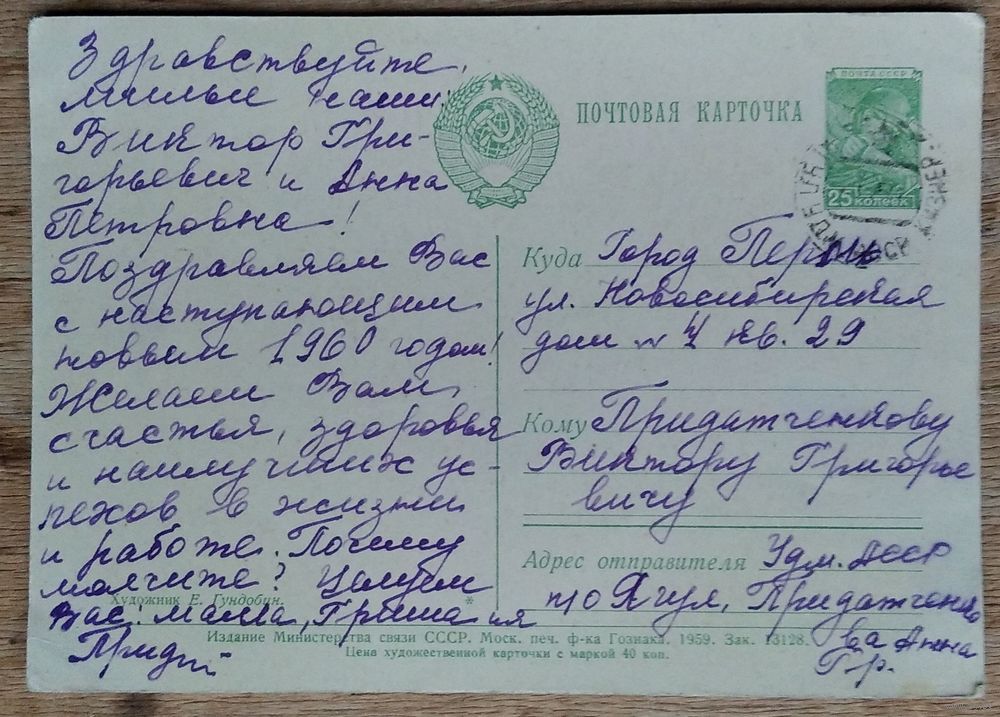 Здравствуйте,
милые наши
Виктор Гри-
горьевич и Анна
Петровна!
Поздравляем Вас
с наступающим
новым 1960 годом!
Желаем Вам
счастья, здоровья
и наилучших ус-
пехов в жизни
и работе. Почему
молчите? Целуем
Вас: мама, Гриша и я
Придат
ПОЧТОВАЯ КАРТОЧКА
ПОЧТА СССР
25 копеек
Куда Город Пермь
ул. Новосибирская
дом № 4 кв. 29
Кому Придатченкову
Виктору Григорье
вичу
Адрес отправителя Удм. АССР
п/о Ягул, Придатченко
ва Анна
Гр.
Художник Е. Гундобин.
Издание Министерства связи СССР. Моск. печ. ф-ка Гознака. 1959. Зак. 13128.
Цена художественной карточки с маркой 40 коп.